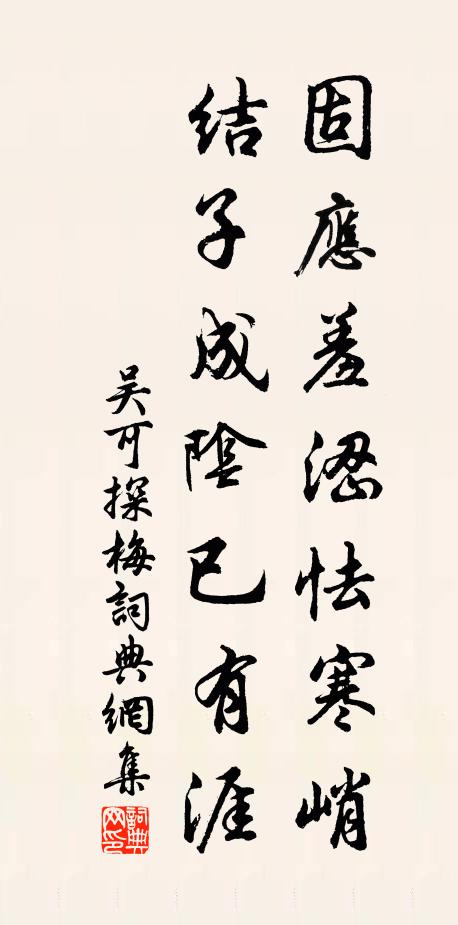 固應羞澀怯寒峭
結子成陰已有涯
吳可探梅詞典網集
詞典網印